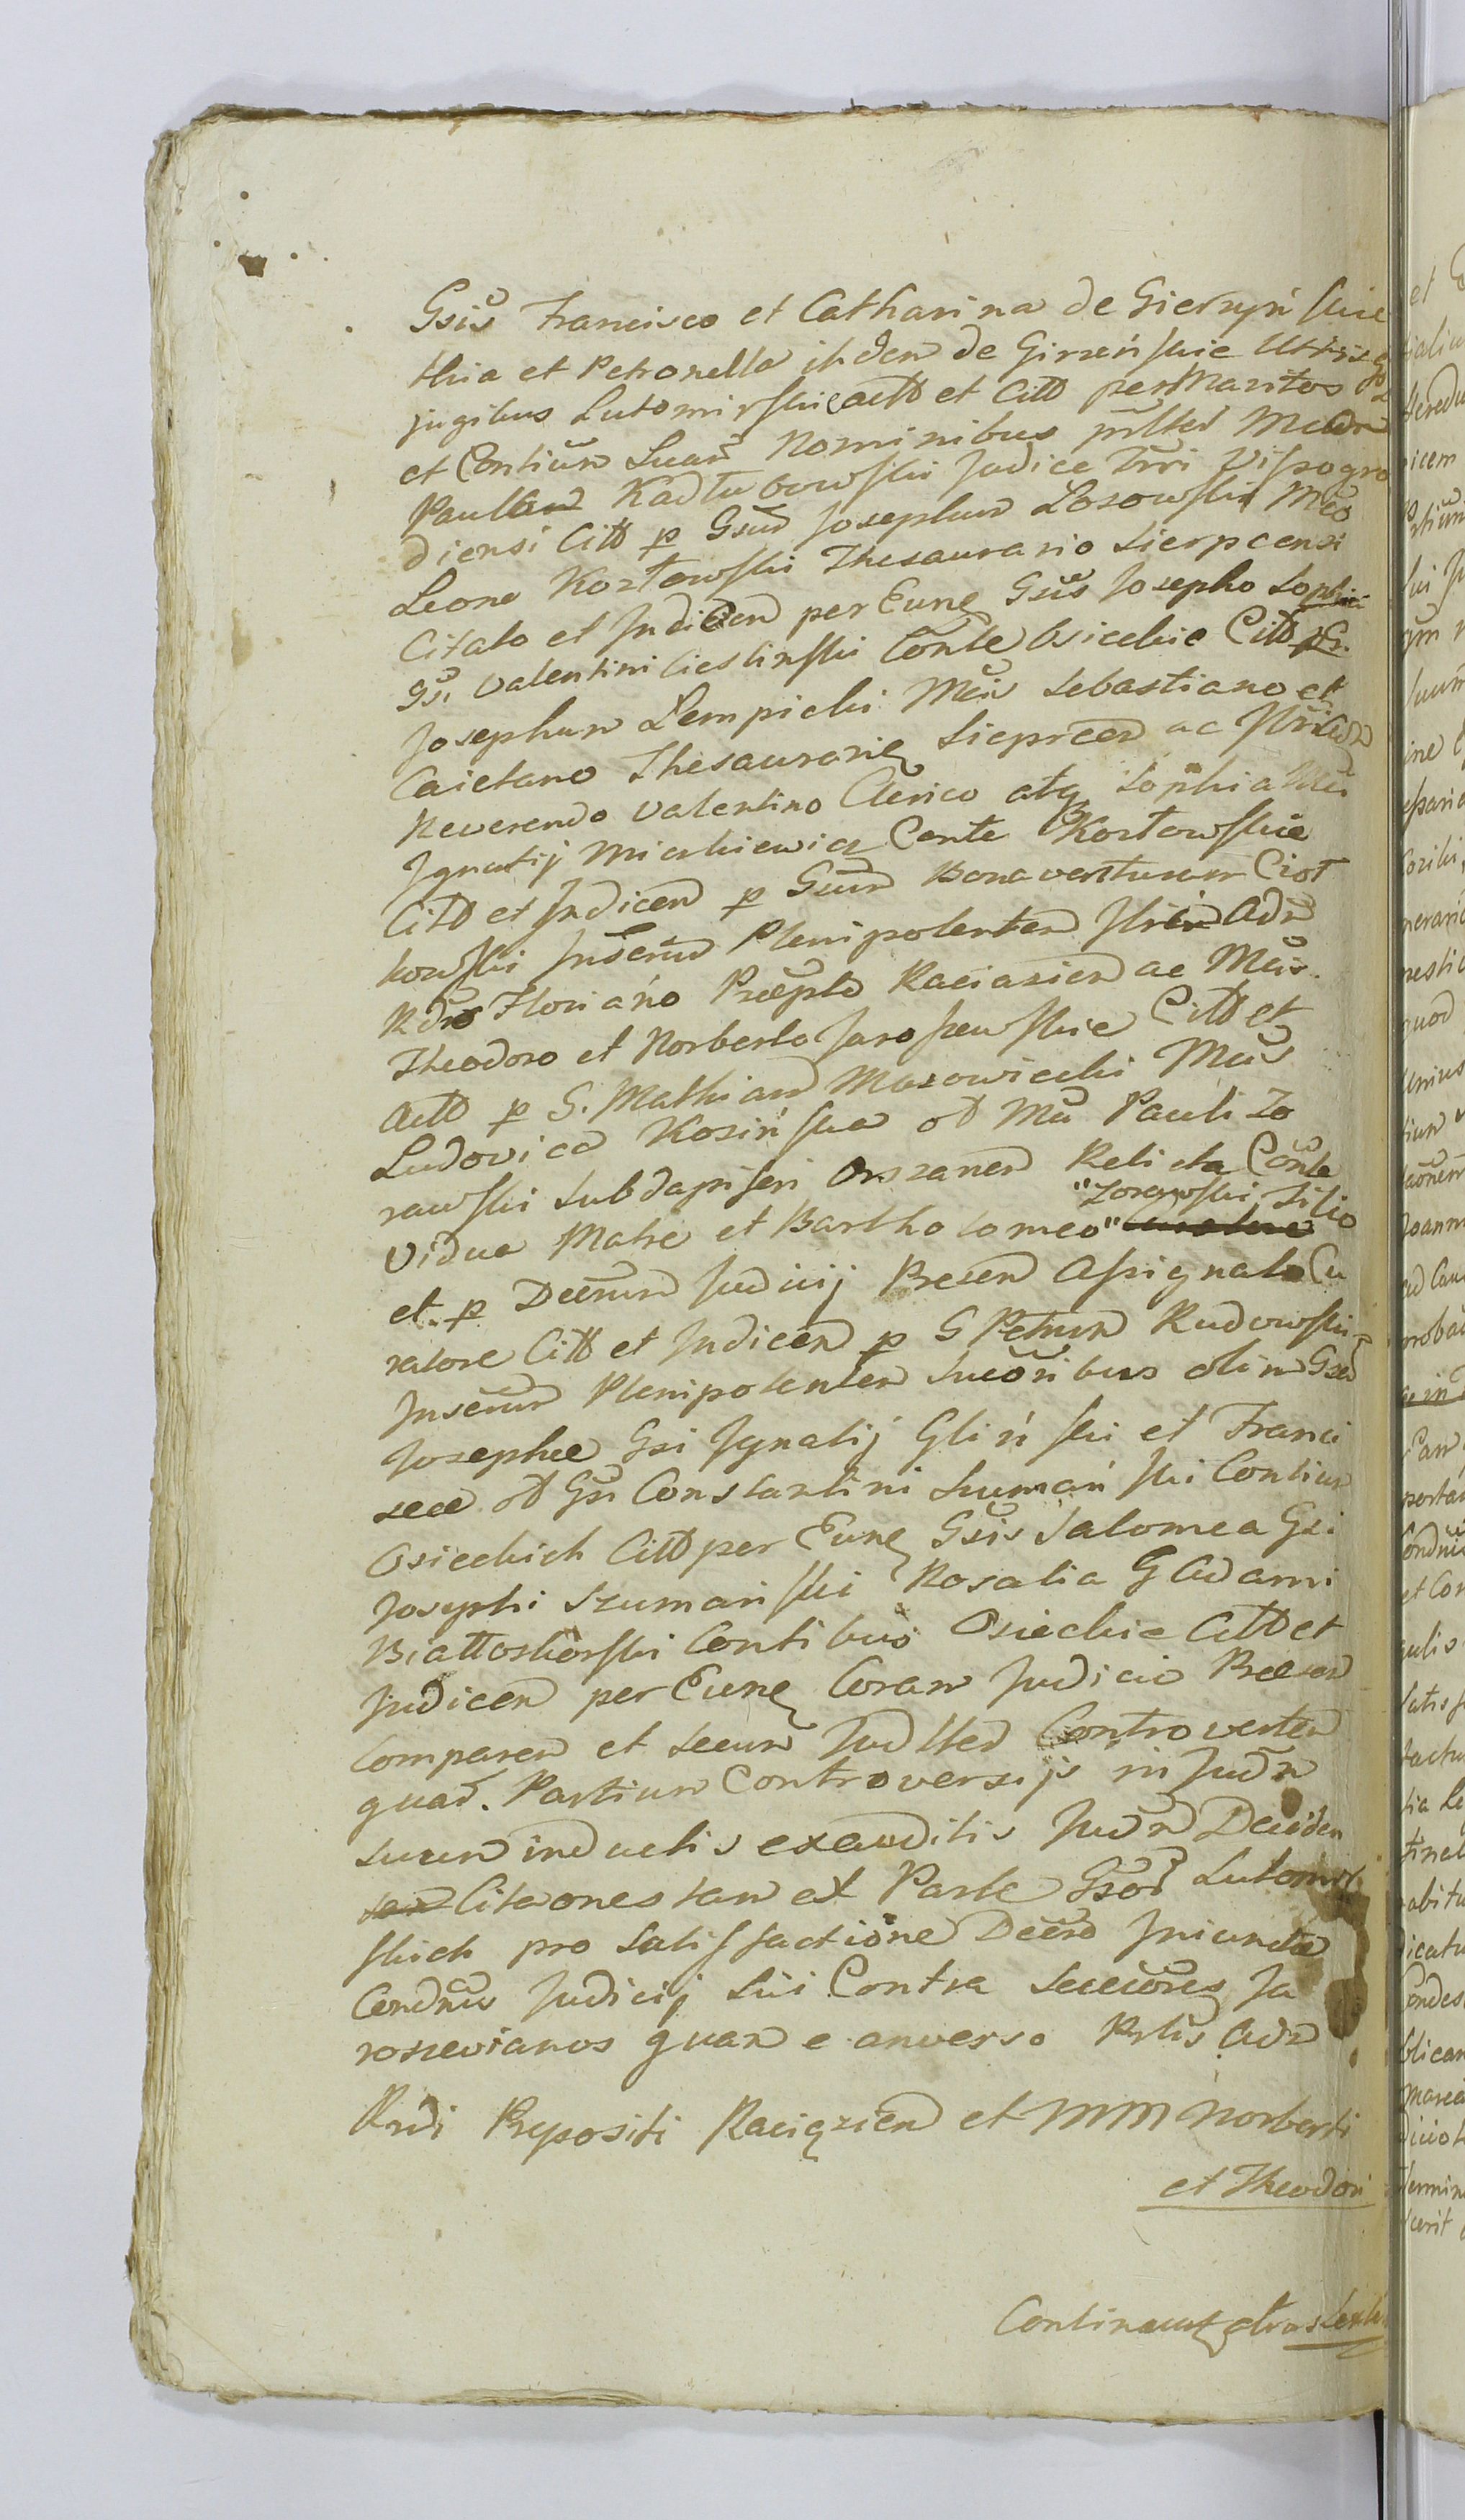 Gsis Francisco et Catharina de Gierzyńskie
thia et Petronella itidem de Girzeńskie Utrisq
jugibus Lutomirskie actt et Citt per Maritos
et Contium Suar Nominibus
Paullum Kadłubowski Judice Trri Vissogro
diensi Citt p Gsum Josephum Losowski Mco
Leone Kozłowski Thesaurario Sierpcensi
Citato et Judicen per Eunq Gsis Josepho Sophia
Gsi Valentini Ciestinski Conte Osieckie Citt p G.
Josephum Lempicki Mcis Sebastiano et
Caietano Thesaurarie Sieprcen ac
Reverendo Valentino Clerico atq Sophia Mci
Jgnatij Miaskiewicz Conte Kozłowskie
Citt et Judicen p Gsum Bonaventuram Ciot
kowski Juserum Plenipotentem Adm
Rdo Floriano Præpto Raciazien ac Mcis
Theodoro et Norberto Jaroszewskie Citt et
Actt p G. Mathiam Mazowiecki Mcis
Ludovica Kosińska ot Mci Pauli Zo
rawski Subdapiferi Orszanen Relicta Conte
Vidua Matre et Bartholomeo "Zorawski Filio
et p Decrum Judicij Presen Assignato Cu
ratore Citt et Judicen p G Petrum Rudowski
Juserum Plenipotentem Sucoribus olim Gsæ
Josephæ Gsi Jgnatij Gliński et Franci
scæ ot Gsi Constantini Szumański Contium
Osieckich Citt per Eunq Gsis Salomea Gsi
Josephi Szumański Rosalia G Adami
Białłoskorski Contibus Osieckie Citt et
Judicen per Eunq Coram Judicio Præsen
Comparen et secum Judlter Controverten
quar. Partium Controversijs in Judm
suum inductis exauditis Judm Deciden
Citaones tam ex Parte Gsor Lutomir
skich pro Satisfactione Decro Jniunctæ
Condnis Judicij Sui Contra Succores Ja
roszevianos quam e anverso Prtis Adm
Rndi Prepositi Raciązien et MM Norberti
et Theodori